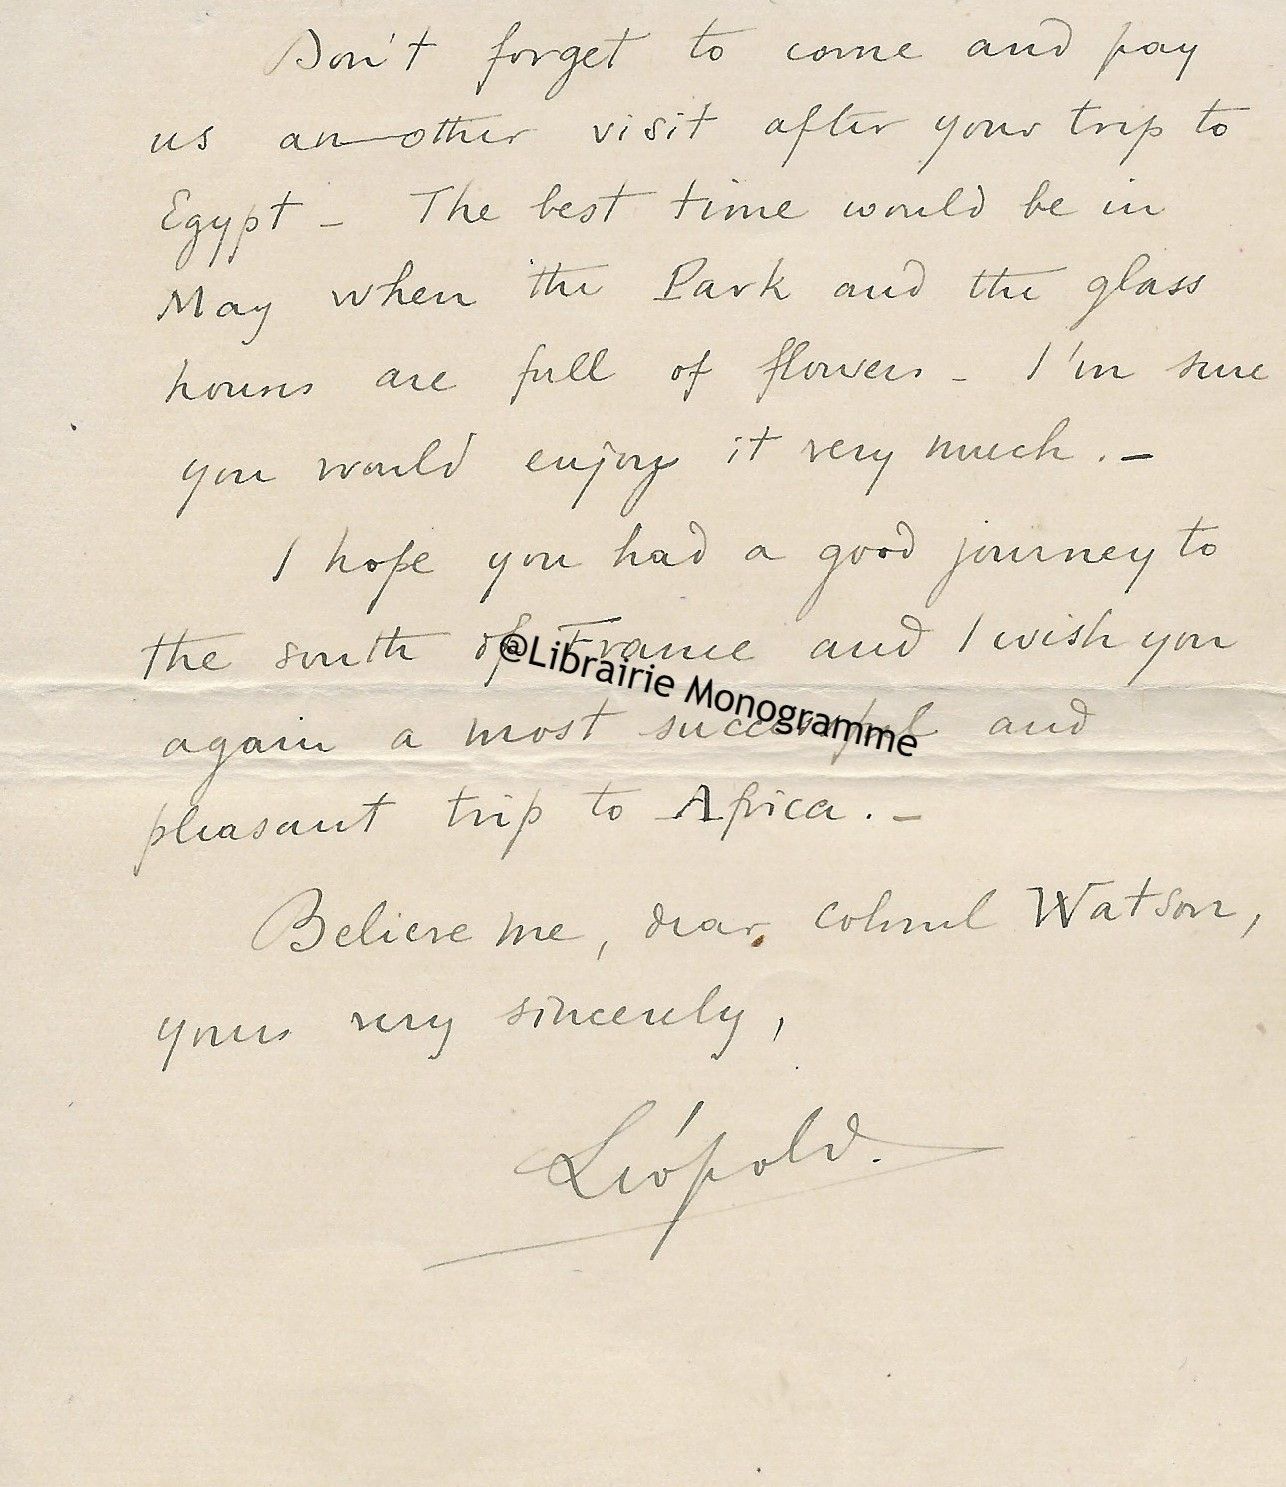 Don't forget to come and pay
us another visit after your trip to
Egypt - The best time would be in
May when the Park and the glass
houses are full of flowers - I'm sure
you would enjoy it very much. -
I hope you had a good journey to
the south of France and I wish you
@Librairie Monogramme
again a most successful and
pleasant trip to Africa. -
Believe me, dear colonel Watson,
yours very sincerely,
Léopold.